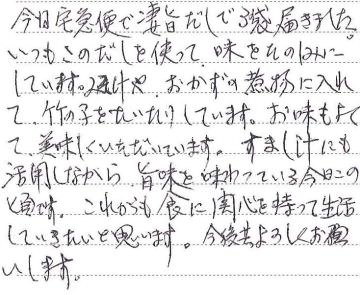 今日宅急便で凄旨だしで3袋届きました。
いつもこのだしを使って、味をたのしみに
しています。みそ汁や、おかずの煮物に入れ
て、竹の子をたいたりしています。お味もよく
て、美味しくいただいています。すまし汁にも
活用しながら、旨味を味わっている今日この
頃です。これからも食に関心を持って生活
していきたいと思います。今後共よろしくお願
いします。